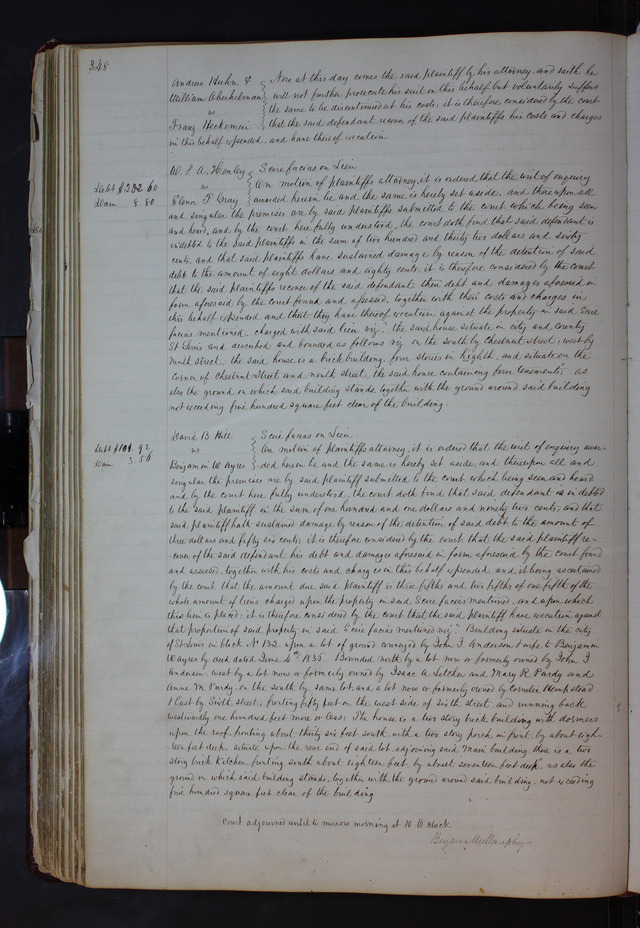 348
Andrew Huhn & Now at this day comes the said plaintiff by his attorney, and saith he
William will not further prosecute his suit in this behalf, but voluntarily suffers
vs the same to be discontinued at his costs; it is therefore considered by the court
Franz Heckemein that the said defendant recover of the said plaintiffs his costs and charges
in this behalf expended, and have thereof execution
W. & A. Henley Scire facias on Lien
Debt $232 60 vs On motion of plaintiffs attorney, it is ordered that the writ of enquiry
Dam 8.80 Elenor P Gray awarded herein be and the same is hereby set aside, and thereupon all
and singular the premises are by said plaintiffs submitted to the court which being seen
and heard, and by the court here fully understood, the court doth find that said defendant is
indebted to the said plaintiffs in the sum of two hundred and thirty two dollars and sixty
cents, and that said plaintiffs have sustained damage by reason of the detention of said
debt to the amount of eight dollars and eighty cents, it is therefore considered by the court
that the said plaintiffs recover of the said defendant their debt and damages aforesaid in
form aforesaid by the court found and assessed, together with their costs and charges in
this behalf expended and that they have thereof execution against the property in said Scire
facias mentioned, charged with said lien viz: "the said house situate in city and county
St Louis and described and bounded as follows viz on the south by Chestnut street, west by
ninth street, the said house is a brick building, four stories in heighth, and situate on the
corner of Chestnut Street and nineth street, the said house containing four tenements" as
also the ground on which said building stands, together with the ground around said building
not exceeding five hundred square feet clear of the building.
David B Hill Scire facias on Lien
Debt $101.92 vs On motion of plaintiffs attorney, it is ordered that the writ of enquiry awar-
Dam 3 56 Benjamin W Ayres ded herein be and the same is hereby set aside, and thereupon all and
singular the premises are by said plaintiff submitted to the court which being seen and heard
and by the court here fully understood, the court doth find that said defendant is indebted
to the said plaintiff in the sum of one hundred and one dollars and ninety two cents, and that
said plaintiff hath sustained damage by reason of the detention of said debt to the amount of
three dollars and fifty six cents; it is therefore considered by the court that the said plaintiff re-
cover of the said defendant his debt and damages aforesaid in form aforesaid by the court found
and assessed, together with his costs and charges in this behalf expended and it being ascertained
by the court, that the amount due said plaintiff is three fifths and two fifths of one fifth of the
whole amount of liens charged upon the property in said Scire facias mentioned, and upon which
this lien is placed; it is therefore considered by the court that the said plaintiff have execution against
that proportion of said property in said Scire facias mentioned viz: "Building situate in the city
of St Louis in block No 132 upon a lot of ground conveyed by John J Anderson & wife to Benjamin
W Ayres by deed dated June 4th 1836. Bounded north by a lot now or formerly owned by John J
Anderson, west by a lot now or formerly owned by Isaac A Letcher and Mary R Purdy and
Anne M Purdy, on the south by same lot and a lot now or formerly owned by Cornelia Hempstead
& East by Sixth street; fronting fifty feet on the west side of sixth street, and running back
westwardly one hundred feet more or less; The house is a two story brick building with dormers
upon the roof, fronting about thirty six feet south, with a two story porch in front by about eigh-
teen feet deep, situate upon the rear end of said lot, adjoining said main building there is a two
story brick kitchen, fronting south about eighteen feet, by about seventeen feet deep", as also the
ground on which said building stands, together with the ground around said building, not exceeding
five hundred square feet clear of the building
Court adjourned until to morrow morning at 10 O'clock
Bryan Mullanphy